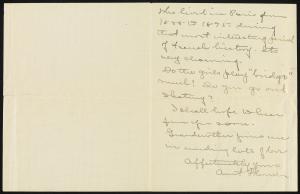 She lived in Paris from
1888 to 1895 during
that most interesting period
of French history. It's
very charming.
Do the girls play "bridge"
much? Do you go out
skating?
I shall hope to hear
from you soon.
Grandmother joins me
in sending lots of love
Affectionately yours
Aunt